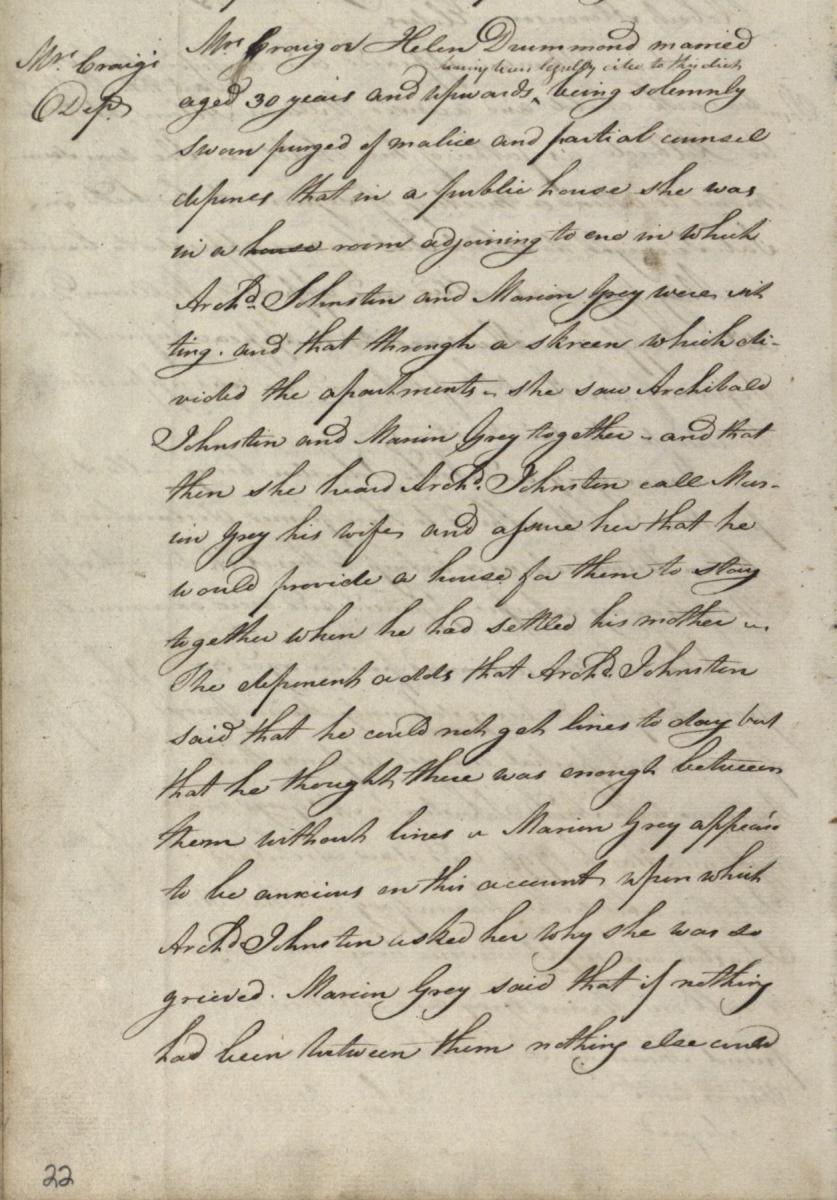 Mrs Craig's
Depn
Mrs Craig or Helen Drummond married
having been legally cited to this diet
aged 30 years and upwards ^ being solemnly
sworn purged of malice and partial counsel
depones that in a public house she was
in a house room adjoining to one in which
Archd. Johnston and Marion Grey were sit
ting. and that through a skreen which di-
vided the apartments she saw Archibald
Johnston and Marion Grey together and that
then she heard Archd. Johnston call Mar-
ion Grey his wife and assure her that he
would provide a house for them to stay
together when he had settled his mother
The deponent adds that Archd. Johnston
said that he could not get lines to day but
that he thought there was enough between
them without lines Marion Grey appear'd
to be anxious on this account upon which
Archd Johnston asked her why she was so
grieved. Marion Grey said that if nothing
had been between them nothing else could
22